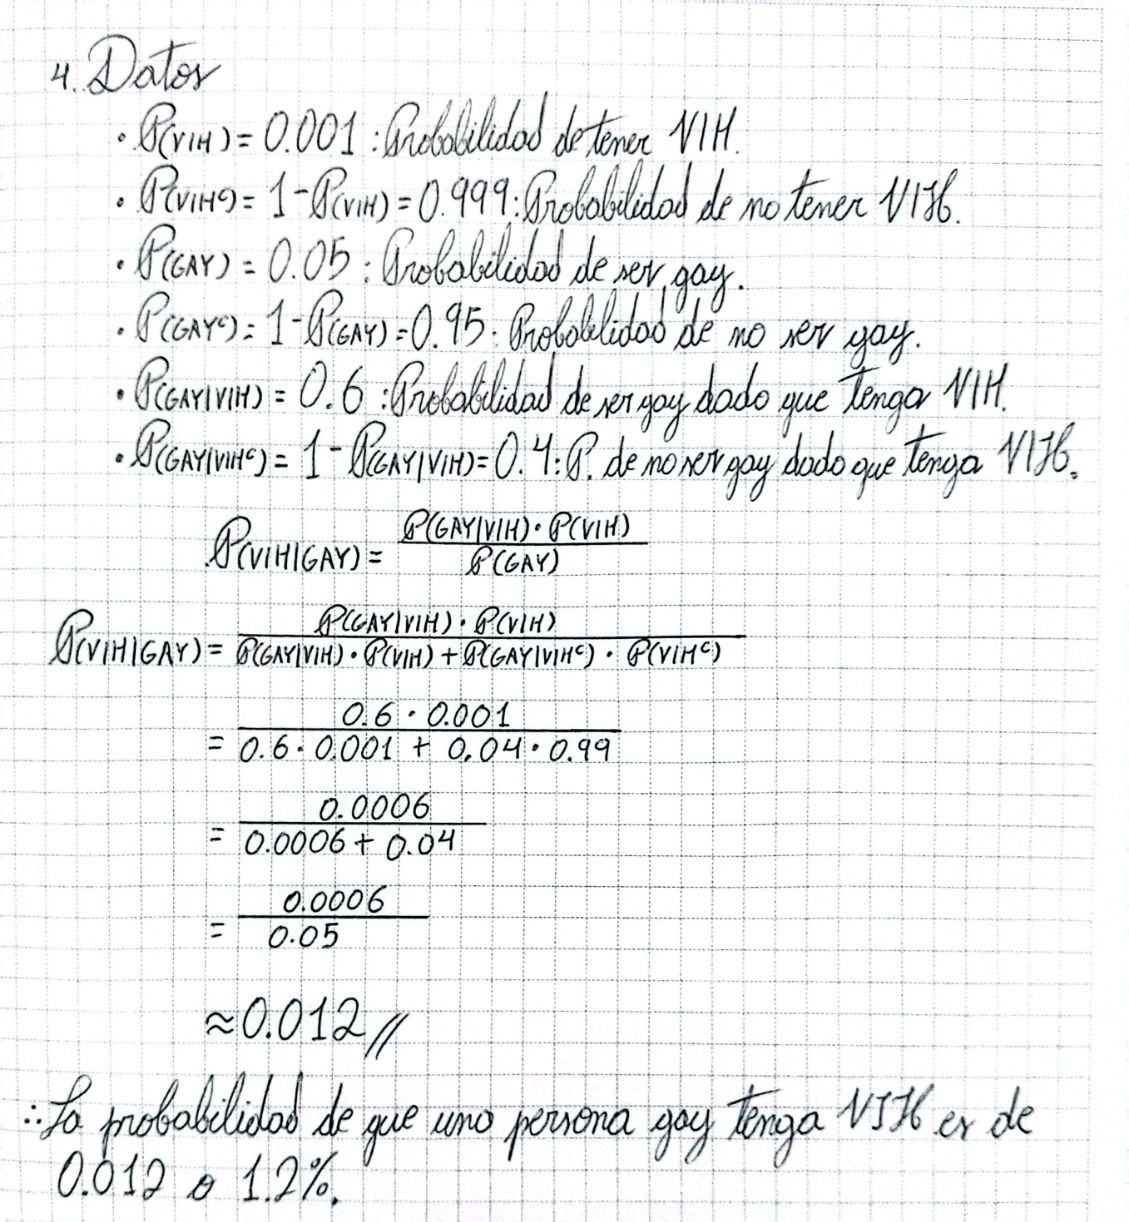 4. Datos
• P(VIH) = 0.001 : Probabilidad de tener VIH.
• P(VIHᶜ) = 1 - P(VIH) = 0.999: Probabilidad de no tener VIH.
• P(GAY) = 0.05 : Probabilidad de ser gay.
• P(GAYᶜ) = 1 - P(GAY) = 0.95 : Probabilidad de no ser gay.
• P(GAY|VIH) = 0.6 : Probabilidad de ser gay dado que tenga VIH.
• P(GAY|VIHᶜ) = 1 - P(GAY|VIH) = 0.4: P. de no ser gay dado que tenga VIH.
P(VIH|GAY) = P(GAY|VIH) · P(VIH) / P(GAY)
P(VIH|GAY) = P(GAY|VIH) · P(VIH) / P(GAY|VIH) · P(VIH) + P(GAY|VIHᶜ) · P(VIHᶜ)
= 0.6 · 0.001 / 0.6 · 0.001 + 0.04 · 0.99
= 0.0006 / 0.0006 + 0.04
= 0.0006 / 0.05
≈ 0.012 //
∴ La probabilidad de que una persona gay tenga VIH es de
0.012 o 1.2%.